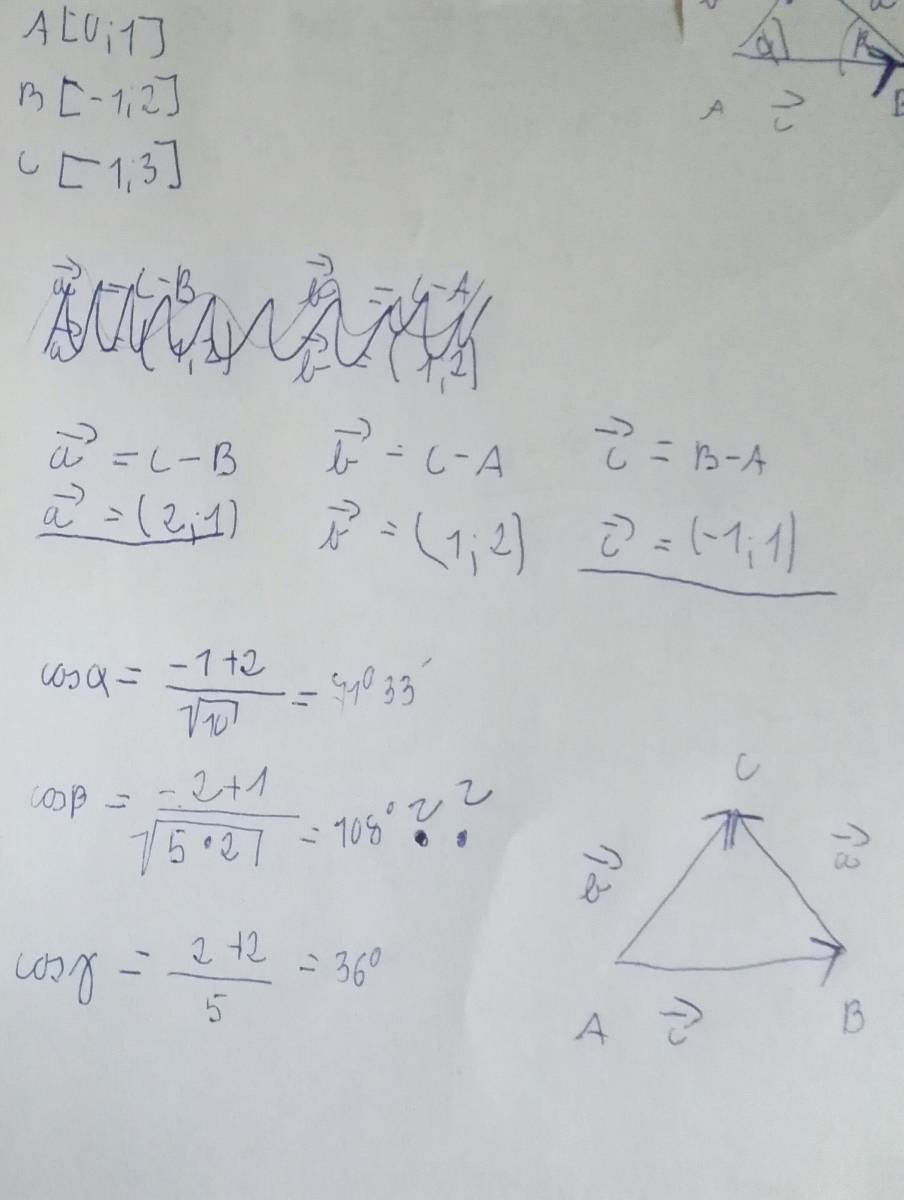 A [0;1]
B [-1;2]
C [-1;3]
α β
A c⃗ B
a⃗ = C-B b⃗ = C-A
a⃗ = C-B b⃗ = C-A c⃗ = B-A
a⃗ = (2;1) b⃗ = (1;2) c⃗ = (-1;1)
cosα = -1+2 / √10 = 71°33′
cosβ = -2+1 / √5·2 = 108° ? ?
cosγ = 2+2 / 5 = 36°
C
b⃗ a⃗
A c⃗ B